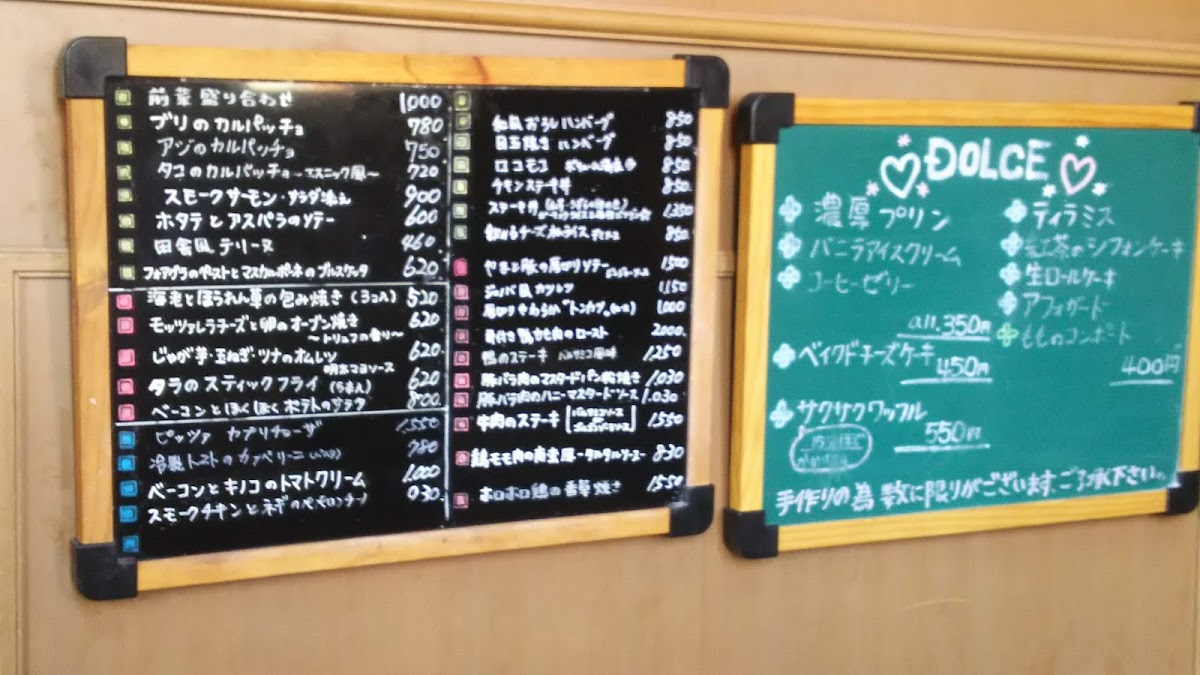 前菜盛り合わせ 1,000
ブリのカルパッチョ 780
アジのカルパッチョ 750
タコのカルパッチョ〜エスニック風〜 720
スモークサーモン・サラダ添え 900
ホタテとアスパラのソテー 600
田舎風テリーヌ 460
フォアグラのペーストとマスカルポーネのブルスケッタ 620
海老とほうれん草の包み焼き(3コ入) 520
モッツァレラチーズと卵のオーブン焼き 620
〜トリュフの香り〜
じゃが芋・玉ねぎ・ツナのオムレツ 620
明太マヨソース
タラのスティックフライ(5本入) 620
ベーコンとほくほくポテトのサラダ 800
ピッツァ カプリチョーザ 1,550
冷製トマトのカッペリーニ 980
ベーコンとキノコのトマトクリーム 1,000
スモークチキンとネギのペペロンチーノ
和風おろしハンバーグ 850
目玉焼きハンバーグ 850
ロコモコ 850
チキンステーキ丼 850
ステーキ丼 1,350
850
やまと豚の厚切りソテー 1500
ジェノバ風カツレツ 1,150
厚切りやわらか"トンカツ 1,000
骨付き鴨もも肉のロースト 2,000
鴨のステーキ バルサミコ風味 1,250
豚バラ肉のマスタードパン粉焼き 1,030
豚バラ肉のハニーマスタードソース 1,030
牛肉のステーキ バルサミコソース ゴルゴンゾーラソース 1550
鶏モモ肉の南蛮風-タルタルソース- 830
ホロホロ鶏の香草焼き 1550
DOLCE
濃厚プリン
バニラアイスクリーム
コーヒーゼリー
all.350円
ベイクドチーズケーキ
450円
サクサクワッフル
550円
ティラミス
紅茶のシフォンケーキ
生ロールケーキ
アフォガード
もものコンポート
400円
手作りの為数に限りがございます、ご了承下さい。